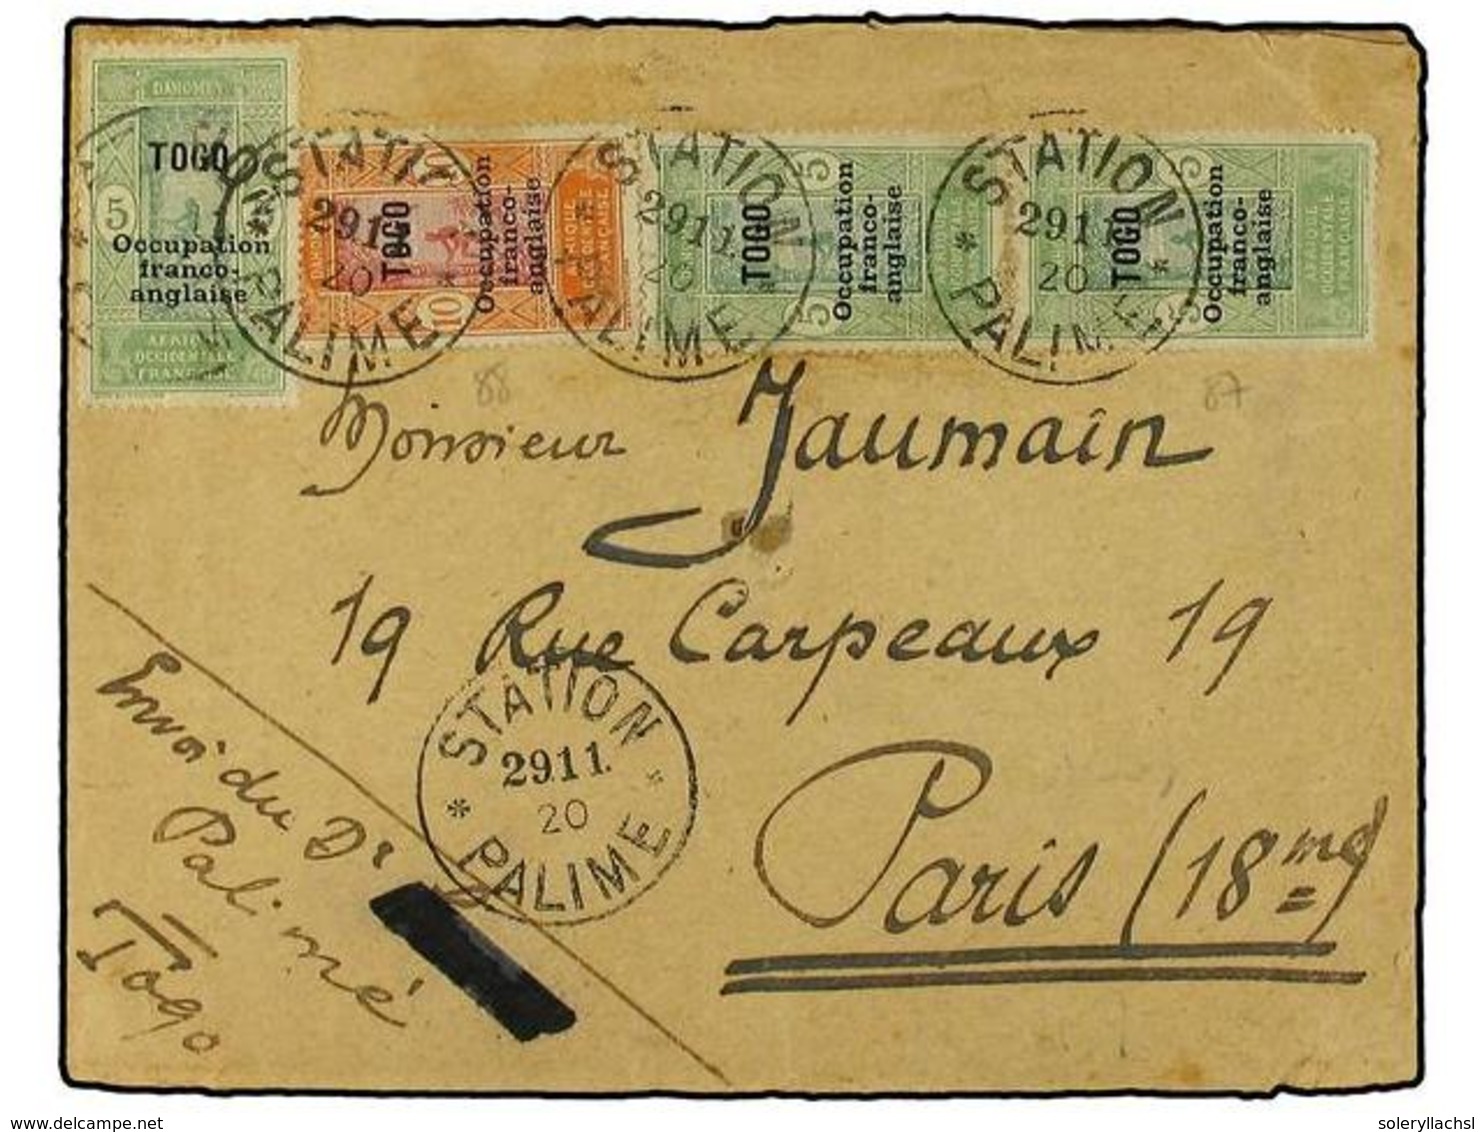 DAHOMEY
TOGO
5
Occupation
franco-
anglaise
AFRIQUE
OCCIDENTALE
FRANÇAISE
10
10
TOGO
Occupation
franco-
anglaise
AFRIQUE
OCCIDENTALE
FRANÇAISE
5
5
TOGO
Occupation
franco-
anglaise
5
5
TOGO
Occupation
franco-
anglaise
STATION
2911
20
PALIME
STATION
2911.
20
PALIME
STATION
2911
20
PALIME
88
87
Monsieur Jaumain
19 Rue Carpeaux 19
Paris (18me)
STATION
2911.
20
PALIME
Envoi du Dr
Palimé
Togo
delcampe.net
soleryllachsl